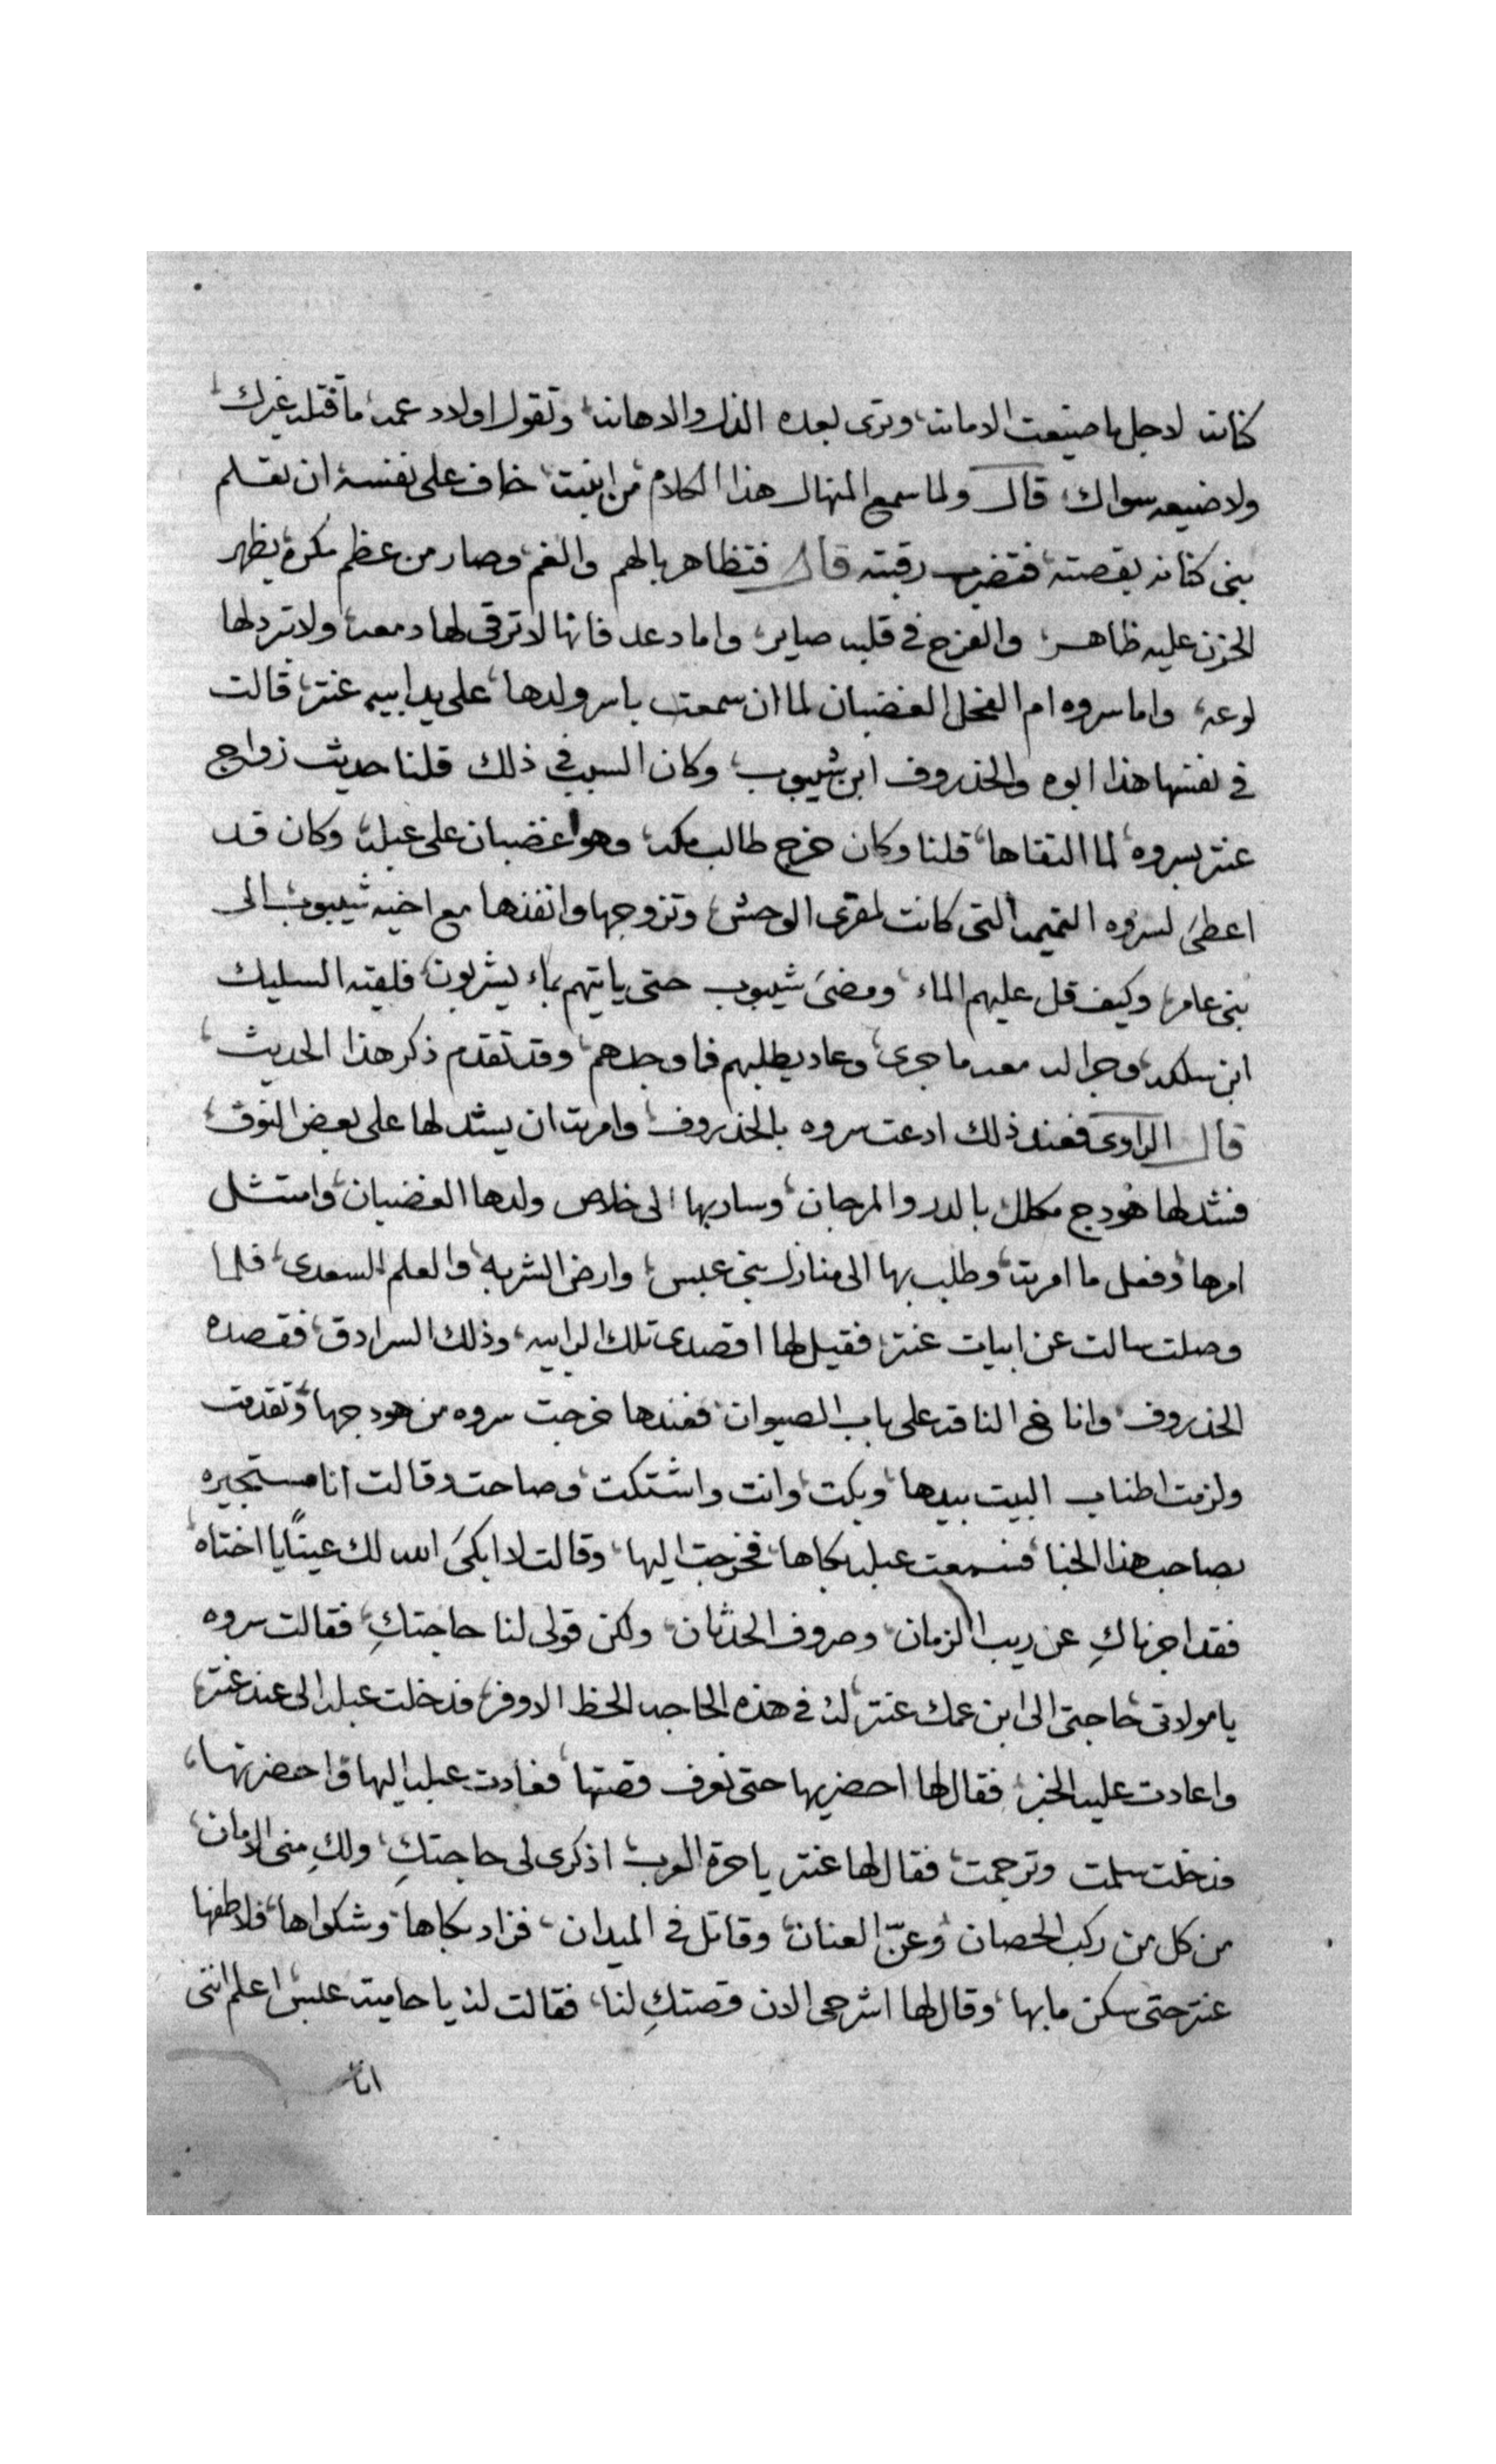 كنانه لاجل ما ضيعت الامانه، وترى بعده الذل والاهانه، وتقول اولاد عمه، ما قتله غيرك،
ولا ضيعه سواك، قال ولما سمع المنهال هذا الكلام من ابنته، خاف على نفسه ان تعلم
بنى كنانه بقصته، فتضرب رقبته قال فتظاهر بالهم والغم، وصار من عظم مكره، يظهر
الحزن عليه ظاهر، والفرح فى قلبه صاير، واما دعد فانها لا ترقى لها دمعه، ولا تبرد لها
لوعه، واما سروه ام الفحل الغضبان لما ان سمعت باسر ولدها، على يد ابيه عنتر، قالت
فى نفسها هذا ابوه والخذروف ابن شيبوب، وكان السبب فى ذلك قلنا حديث زواج
عنتر بسروه، لما التقاها، قلنا وكان خرج طالب مكه، وهو غضبان على عبله، وكان قد
اعطى لسروه التميمه التى كانت لمقرى الوحش، وتزوجها وانفذها مع اخيه شيبوب الى
بنى عامر، وكيف قل عليهم الماء، ومضى شيبوب حتى ياتيهم بماء يشربون، فلقيه السليك
ابن سلكه، وجرا له معه ما جرى، وعاد يطلبهم فما وجدهم، وقد تقدم ذكر هذا الحديث،
قال الراوى فعند ذلك ادعت سروه بالخذروف، وامرته ان يشد لها على بعض النوق،
فشد لها هودج مكلل بالدر والمرجان، وسار بها الى خلاص ولدها الغضبان، وامتثل
امرها، وفعل ما امرته، وطلب بها الى منازل بنى عبس، وارض الشربه، والعلم السعدى، فلما
وصلت سالت عن ابيات عنتر، فقيل لها اقصدى تلك الرابيه، وذلك السرادق، فقصده
الخذروف، واناخ الناقه على باب الصيوان، فعندها خرجت سروه من هودجها، وتقدمت
ولزمت اطناب البيت بيدها، وبكت، وانت واشتكت، وصاحت وقالت انا مستجيره
بصاحب هذا الخبا، فسمعت عبله بكاها، فخرجت اليها، وقالت لا ابكى الله لك عينًا يا اختاه،
فقد اجرناكِ عن ريب الزمان، وصروف الحدثان، ولكن قولى لنا حاجتكِ، فقالت سروه
يا مولاتى حاجتى الى ابن عمك عنتر، له فى هذه الحاجه الحظ الاوفر، فدخلت عبله الى عند عنتر،
واعادت عليه الخبر، فقال لها احضريها حتى نعرف قصتها، فعادت عبله اليها واحضرتها،
فدخلت سلمت وترحمت، فقال لها عنتر يا حرة العرب، اذكرى لى حاجتكِ، ولكِ منى الامان،
من كل من ركب الحصان، وعنّ العنان، وقاتل فى الميدان، فزاد بكاها، وشكواها، فلاطفها
عنتر حتى سكن ما بها، وقال لها اشرحى الان قصتكِ لنا، فقالت له يا حامية عبس، اعلم اننى
انا